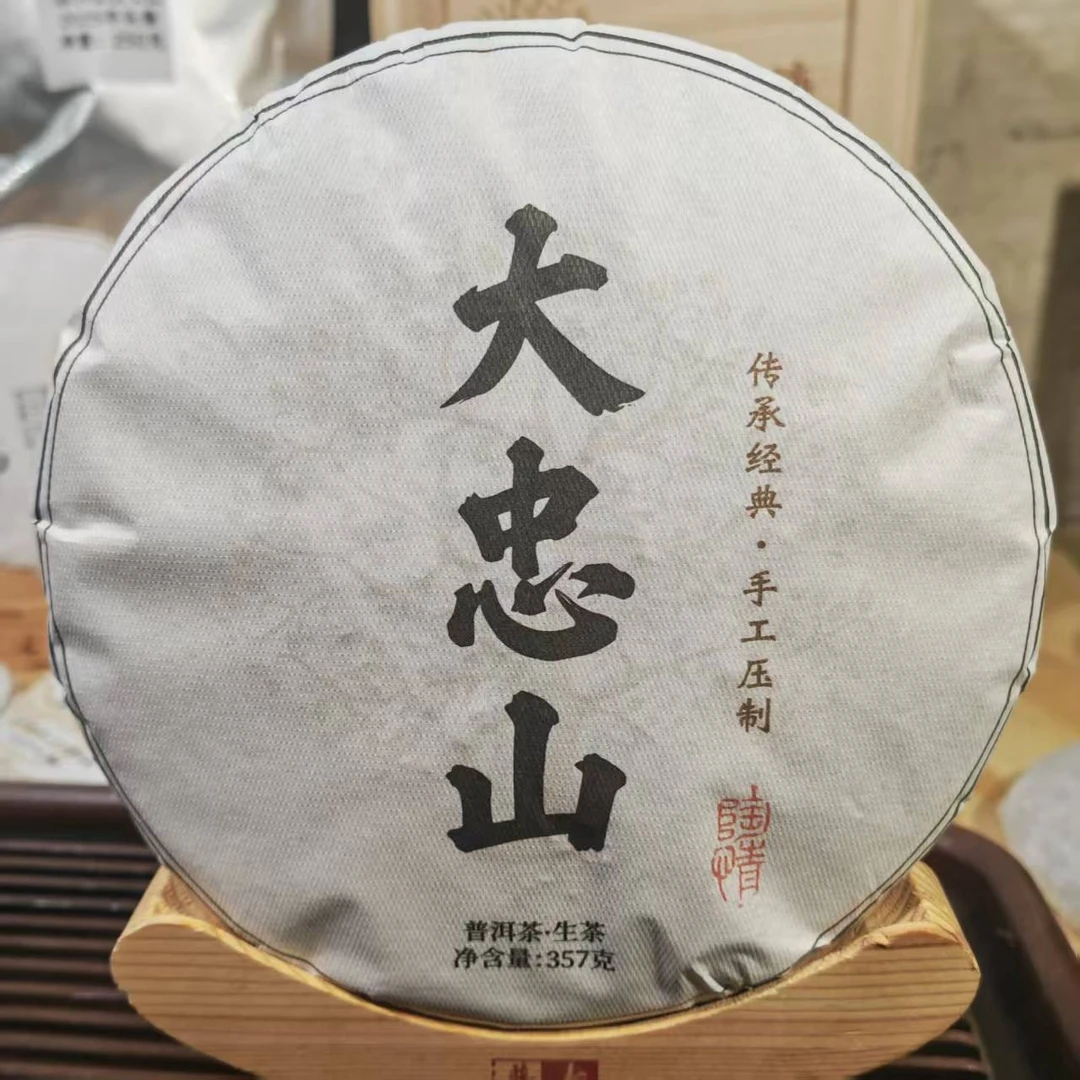 大忠山
传承经典·手工压制
陶情
普洱茶·生茶
净含量:357克